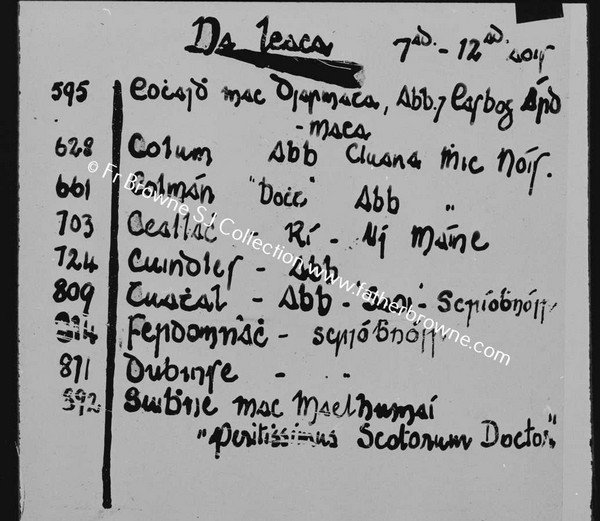 Na leaca 7ad. - 12ad aois
595 Eoċaid mac Diarmata, Abb ⁊ Easbog Árd
-maca
628 Colum Abb Cluana Mic Nóis.
661 Colmán "bocc" Abb "
703 Ceallaċ - Rí - Uí Maine
724 Cuindles - Abb
809 Tuaṫal - Abb - Saoi - Scríoḃnóir
814 Ferdomnaċ - scríoḃnóir
871 Dubinse - "
892 Suiḃne mac Maelhumai
"Peritissimus Scotorum Doctor"
© Fr Browne SJ Collection www.fatherbrowne.com